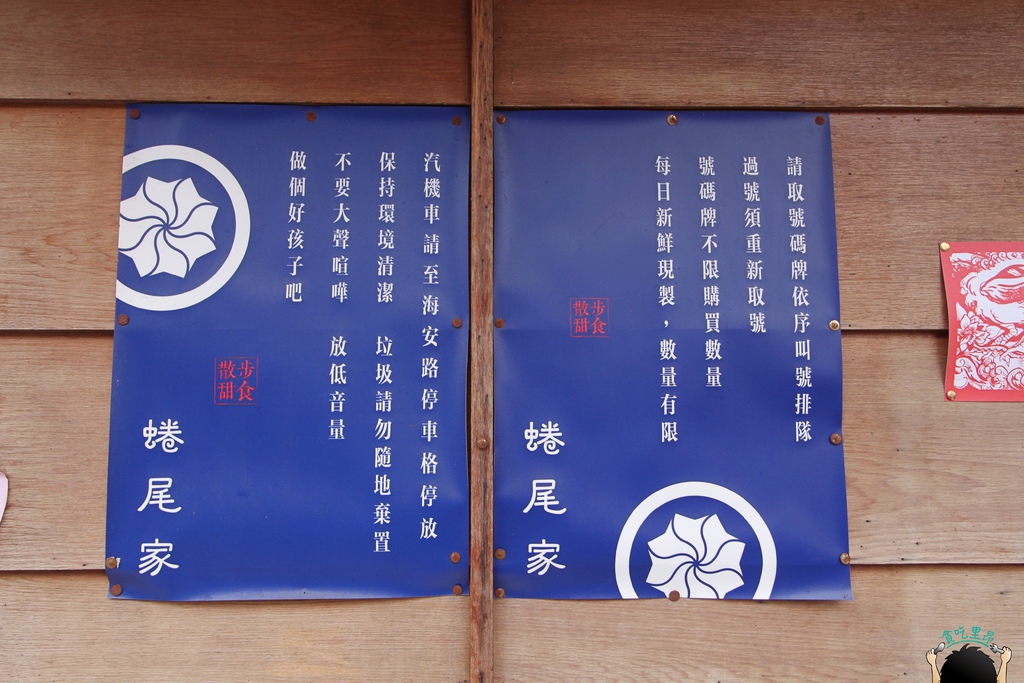 請取號碼牌依序叫號排隊
過號須重新取號
號碼牌不限購買數量
每日新鮮現製，數量有限
散步
甜食
蜷尾家
汽機車請至海安路停車格停放
保持環境清潔 垃圾請勿隨地棄置
不要大聲喧嘩 放低音量
做個好孩子吧
散步
甜食
蜷尾家
貪吃里昂